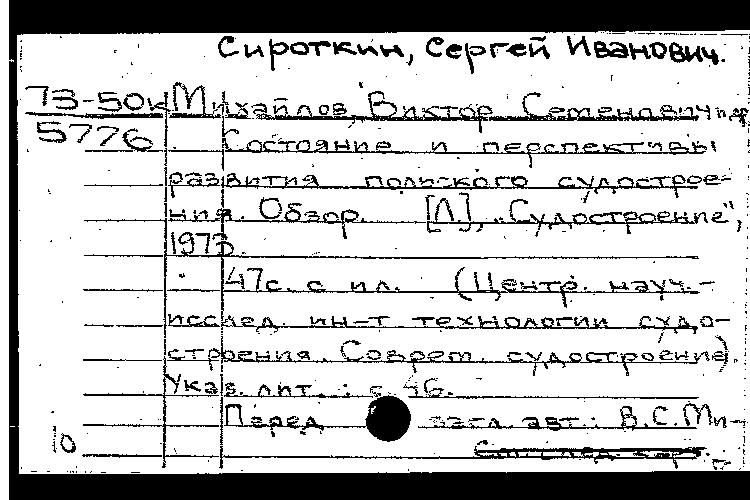 Сироткин, Сергей Иванович.
73-50к Михайлов, Виктор Семенович и др
5776 Состояние и перспективы
развития польского судострое-
ния. Обзор. [Л], "Судостроение",
1973.
47с. с ил. (Центр. науч.-
исслед. ин-т технологии судо-
строения. Соврем. судостроение).
Указ. лит.: с. 46.
Перед загл. авт.: В.С.Ми-
10
См. след. карт.